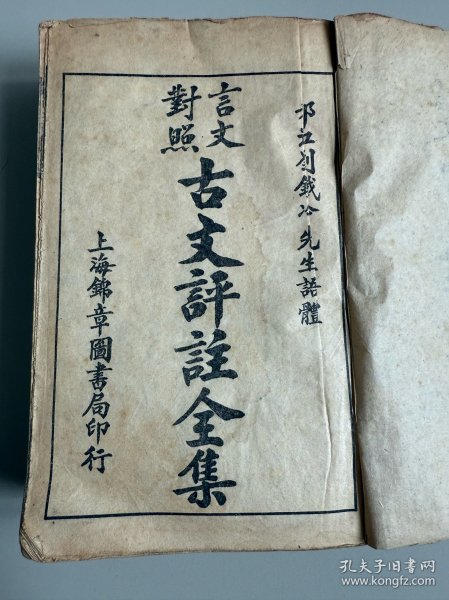 邗江劉鐵冷先生語體
言文
對照
古文評註全集
上海錦章圖書局印行
孔夫子旧书网
www.kongfz.com